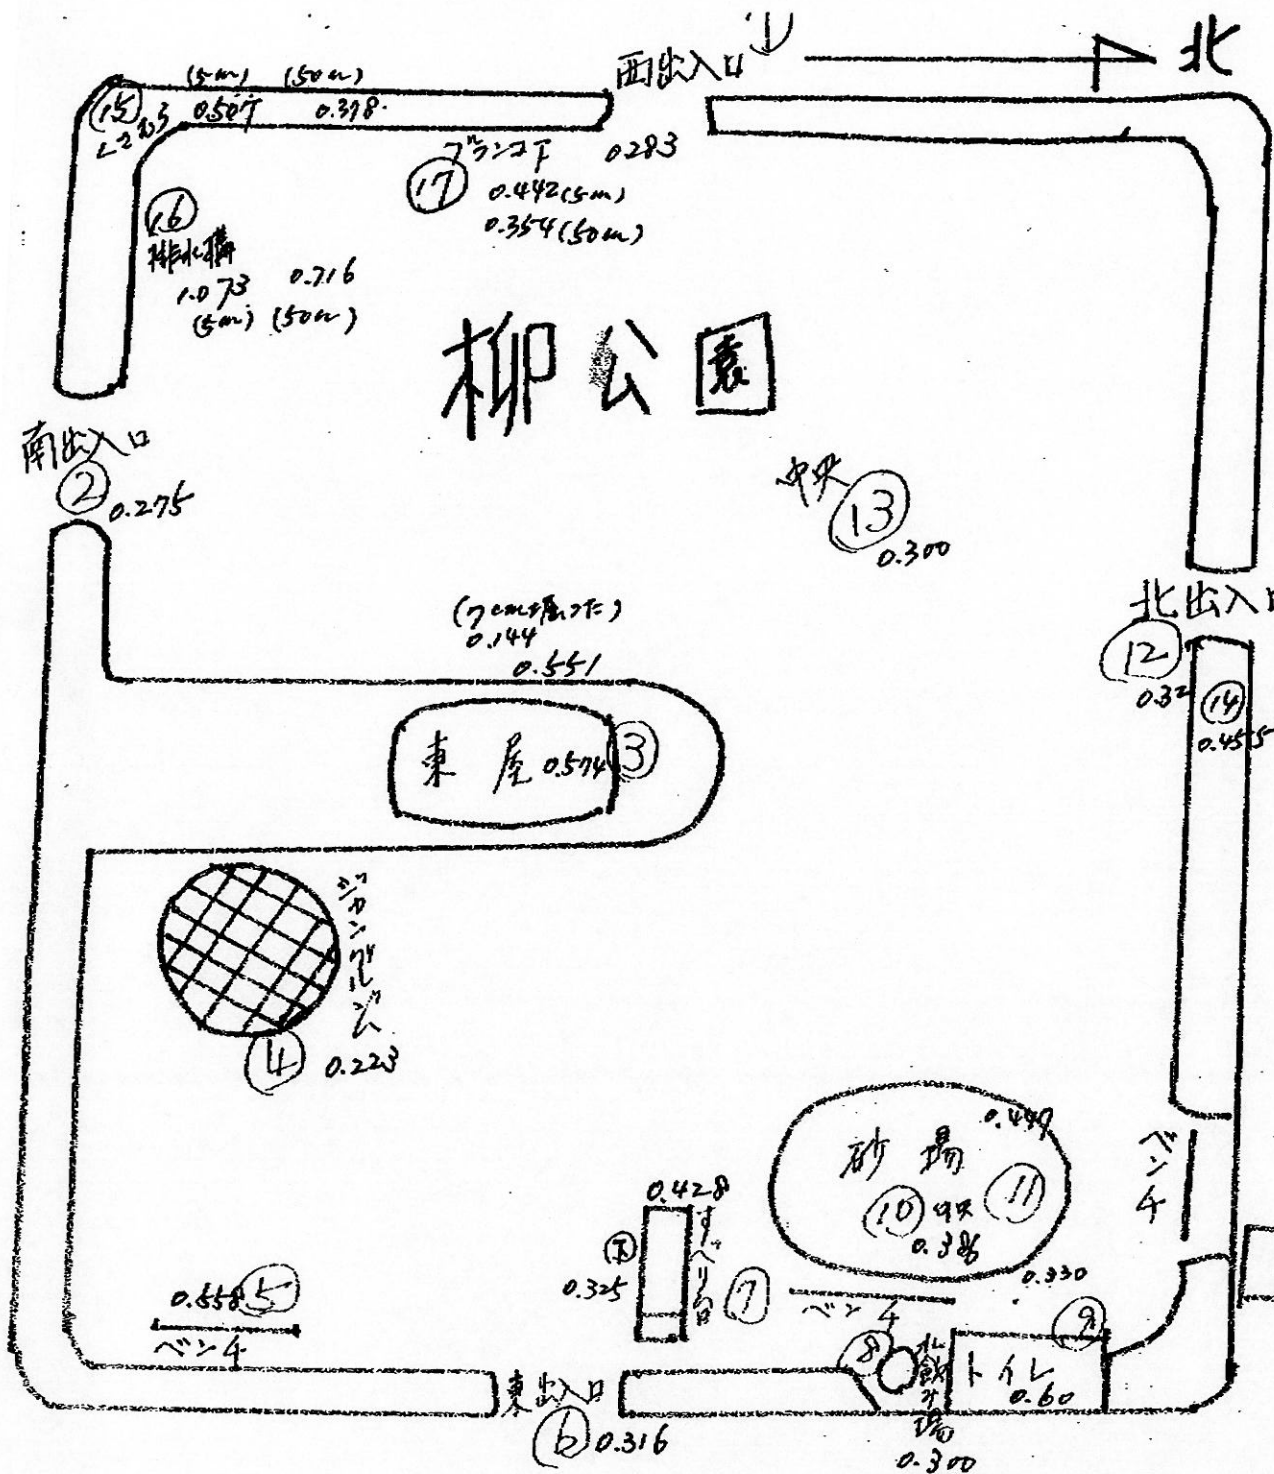 西出入口 ①
北
(5m) (50m)
⑮ 0.507 0.378
0.283
⑰ ブランコ下
0.442(5m)
0.354(50m)
⑯
排水溝
1.073 0.716
(5m) (50m)
柳公園
南出入口
② 0.275
中央
⑬
0.300
北出入口
⑫
0.32
⑭
0.455
0.144
0.551
東屋 0.574 ③
ジャングルジム
④ 0.223
0.447
砂場
⑩ 中央 ⑪
0.386
ベンチ
0.428
すべり台
下
0.325
⑦
0.330
ベンチ
0.558 ⑤
ベンチ
⑧
水飲み場
0.300
⑨
トイレ
0.60
東出入口
⑥ 0.316